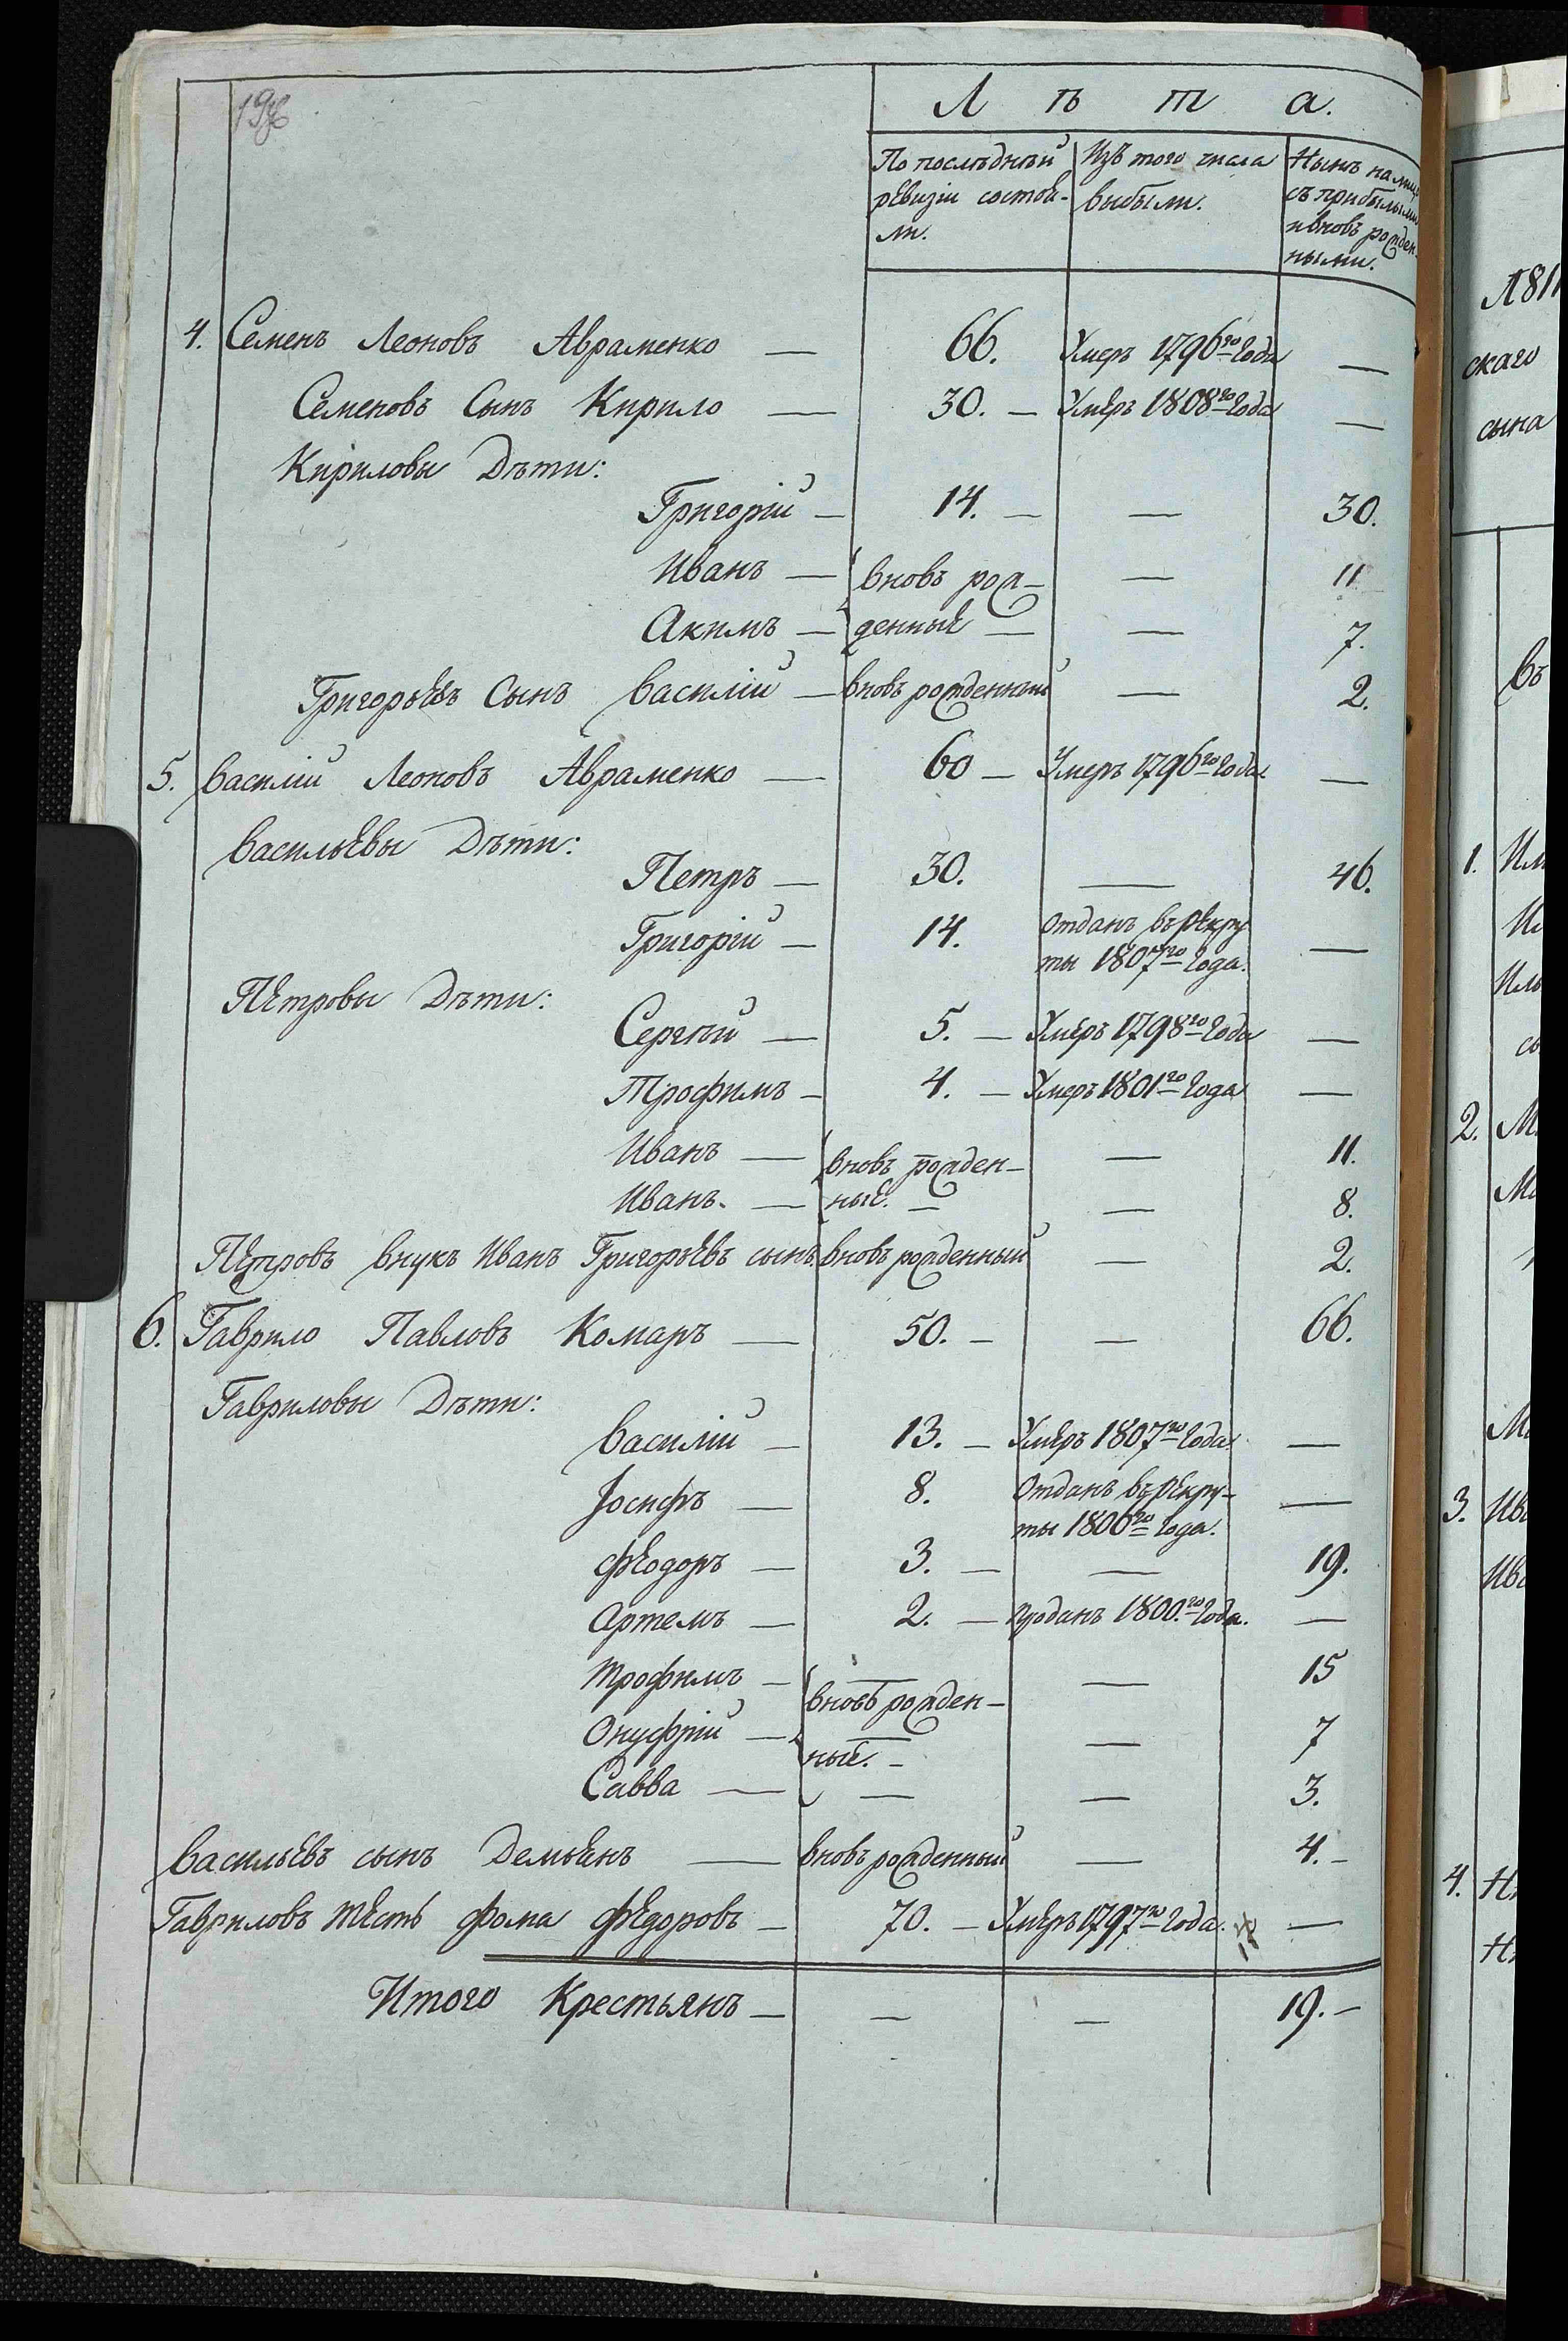 Л ѣ т а.
По послѣдней ревизіи состояли.
Изъ того числа выбыли.
Нынѣ на лицо съ прибылыми и вновь рожденными.
4. Семенъ Леоновъ Авраменко — 66. Умеръ 1796го года —
Семеновъ Сынъ Кирило — 30. — Умеръ 1808го года —
Кириловы Дѣти:
Григорій — 14. — — 30.
Иванъ — вновь рож- — 11
Акимъ — денные — — 7.
Григорьевъ Сынъ Василій — вновь рожденный — 2.
5. Василій Леоновъ Авраменко — 60 — Умеръ 1796го года —
Васильевы Дѣти:
Петръ — 30. — 46.
Григорій — 14. Отданъ въ рекру
ты 1807го года. —
Петровы Дѣти:
Сергѣй — 5. — Умеръ 1798го года —
Трофимъ — 4. — Умеръ 1801го года —
Иванъ — вновь рожден- — 11.
Иванъ. — ные. — — 8.
Петровъ внукъ Иванъ Григорьевъ сынъ. вновь рожденный — 2.
6. Гаврило Павловъ Комаръ — 50. — — 66.
Гавриловы Дѣти:
Василій — 13. — Умеръ 1807го года. —
Іосифъ — 8. Отданъ въ рекру-
ты 1806го года. —
Феодоръ — 3. — — 19.
Артемъ — 2. — 1800.го года. —
Трофимъ — — 15
вновь рожден-
Онуфрій — — 7
ные. —
Савва — — — 3.
Васильевъ сынъ Демьянъ — вновь рожденный — 4. —
Гавриловъ тесть Фома Федоровъ — 70. — Умеръ 1797го года. —
Итого Крестьянъ — — — 19. —
1811
скаго
сына
въ
1.
2.
3.
4.